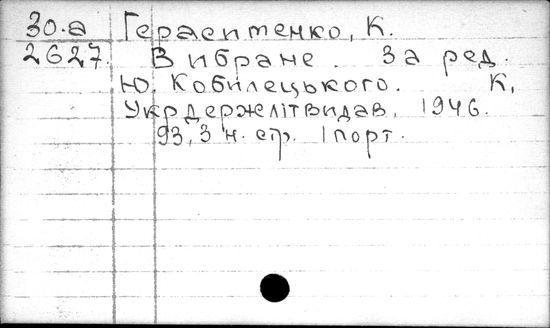 30.а Герасименко, К.
2627. Вибране. За ред.
Ю. Кобилецького. К,
Укрдержлітвидав, 1946.
93, 3 н. стр. 1 порт.